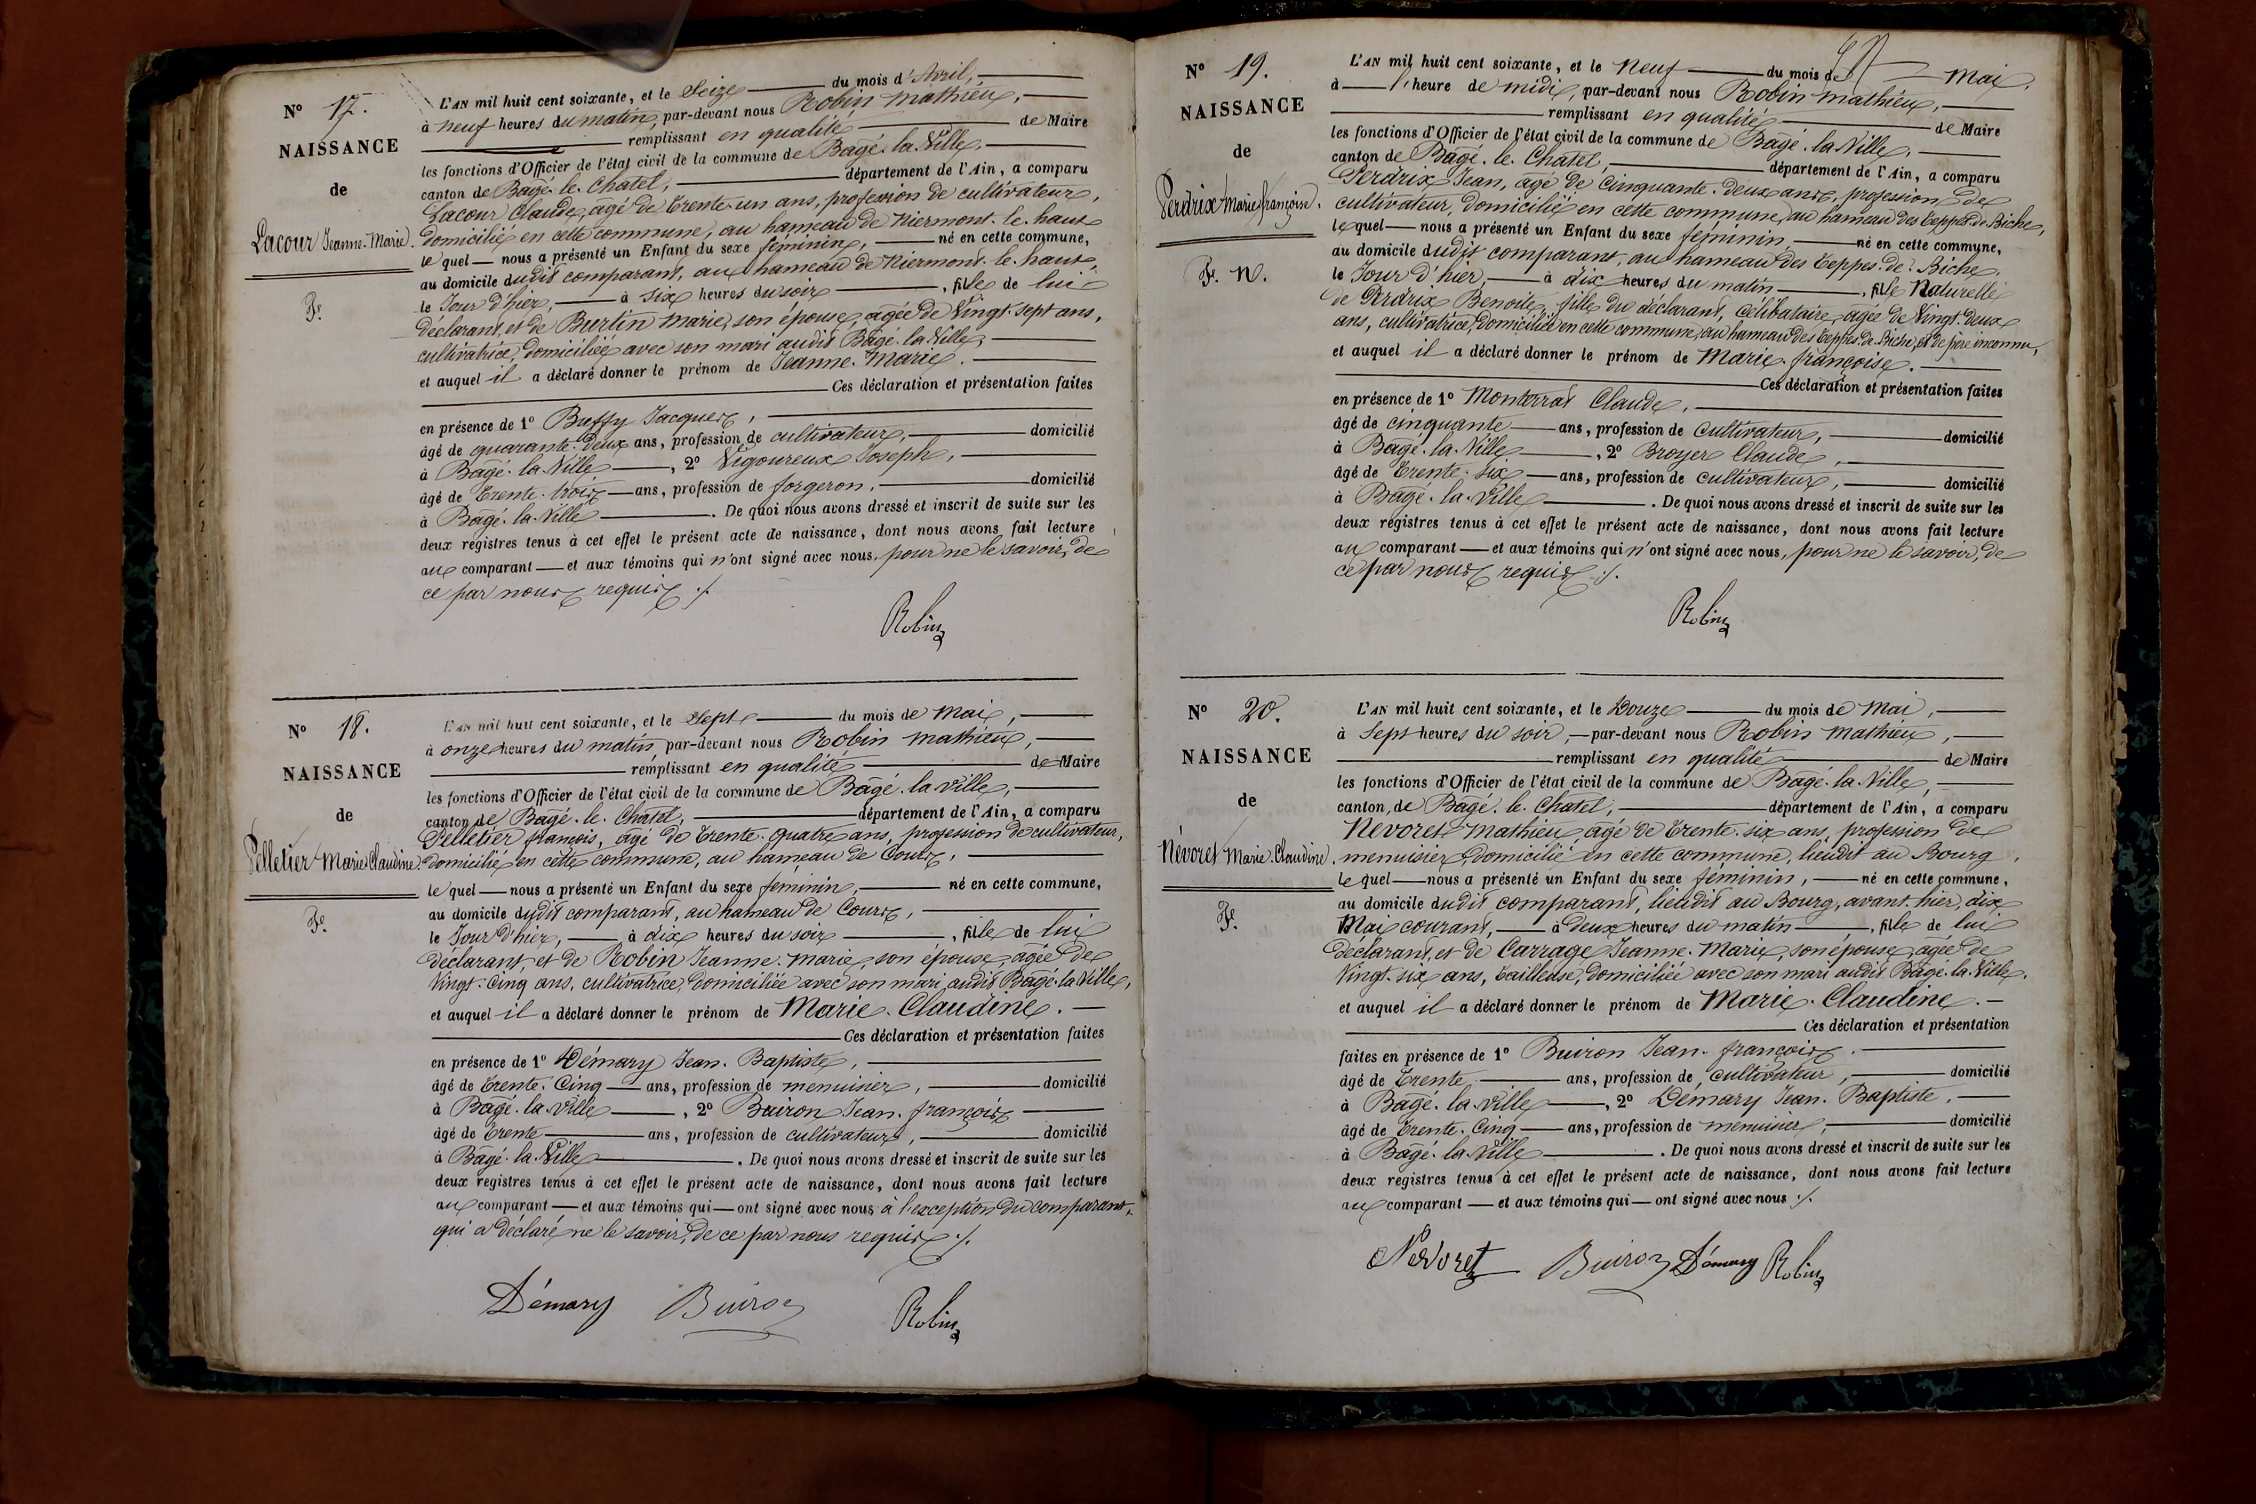 N° 17.
NAISSANCE
de
Lacour Jeanne-Marie.
Fe.
L'AN mil huit cent soixante, et le Seize du mois d'Avril,
à neuf heures du matin, par-devant nous Robin Mathieu,
remplissant en qualité de Maire
les fonctions d'Officier de l'état civil de la commune de Bâgé-la-Ville,
canton de Bâgé-le-Chatel, département de l'Ain, a comparu
Lacour Claude, âgé de trente-un ans, profession de cultivateur,
domicilié en cette commune, au hameau de Niermont-le-haut
lequel nous a présenté un Enfant du sexe féminin, né en cette commune,
au domicile dudit comparant, au hameau de Niermont-le-haut,
le Jour d'hier, à six heures du soir, fille de lui
déclarant, et de Burtin Marie, son épouse, âgée de Vingt-sept ans,
cultivatrice, domiciliée avec son mari audit Bâgé-la-Ville,
et auquel il a déclaré donner le prénom de Jeanne-Marie.
Ces déclaration et présentation faites
en présence de 1° Buffy Jacques,
âgé de quarante-deux ans, profession de cultivateur, domicilié
à Bâgé-la-Ville, 2° Vigoureux Joseph,
âgé de trente-trois ans, profession de forgeron, domicilié
à Bâgé-la-Ville. De quoi nous avons dressé et inscrit de suite sur les
deux registres tenus à cet effet le présent acte de naissance, dont nous avons fait lecture
au comparant et aux témoins qui n'ont signé avec nous, pour ne le savoir, de
ce par nous requis ./.
Robin
N° 18.
NAISSANCE
de
Pelletier Marie-Claudine.
Fe.
L'AN mil huit cent soixante, et le Sept du mois de Mai,
à onze heures du matin, par-devant nous Robin Mathieu,
remplissant en qualité de Maire
les fonctions d'Officier de l'état civil de la commune de Bâgé-la-Ville,
canton de Bâgé-le-Chatel, département de l'Ain, a comparu
Pelletier françois, âgé de trente-quatre ans, profession de cultivateur,
domicilié en cette commune, au hameau de Cours,
lequel nous a présenté un Enfant du sexe féminin, né en cette commune,
au domicile dudit comparant, au hameau de Cours,
le Jour d'hier, à dix heures du soir, fille de lui
déclarant, et de Robin Jeanne-Marie, son épouse, âgée de
Vingt-Cinq ans, cultivatrice, domiciliée avec son mari audit Bâgé-la-Ville,
et auquel il a déclaré donner le prénom de Marie-Claudine.
Ces déclaration et présentation faites
en présence de 1° Démary Jean-Baptiste,
âgé de trente-Cinq ans, profession de menuisier, domicilié
à Bâgé-la-Ville, 2° Buiron Jean-françois
âgé de trente ans, profession de cultivateur, domicilié
à Bâgé-la-Ville. De quoi nous avons dressé et inscrit de suite sur les
deux registres tenus à cet effet le présent acte de naissance, dont nous avons fait lecture
au comparant et aux témoins qui ont signé avec nous à l'exception du comparant,
qui a déclaré ne le savoir, de ce par nous requis ./.
Démary Buiron Robin
N° 19.
NAISSANCE
de
Perdrix Marie-françoise.
Fe. N.
L'AN mil huit cent soixante, et le Neuf du mois de Mai,
à l'heure de midi, par-devant nous Robin Mathieu,
remplissant en qualité de Maire
les fonctions d'Officier de l'état civil de la commune de Bâgé-la-Ville,
canton de Bâgé-le-Chatel, département de l'Ain, a comparu
Perdrix Jean, âgé de Cinquante-deux ans, profession de
cultivateur, domicilié en cette commune, au hameau des Teppes-de-Biche,
lequel nous a présenté un Enfant du sexe féminin, né en cette commune,
au domicile dudit comparant, au hameau des Teppes-de-Biche,
le Jour d'hier, à dix heures du matin, fille Naturelle
de Perdrix Benoite, fille du déclarant, Célibataire, âgée de Vingt-deux
ans, cultivatrice, domiciliée en cette commune, au hameau des Teppes-de-Biche, et de père inconnu,
et auquel il a déclaré donner le prénom de Marie-françoise.
Ces déclaration et présentation faites
en présence de 1° Monterrat Claude,
âgé de cinquante ans, profession de Cultivateur, domicilié
à Bâgé-la-Ville, 2° Broyer Claude,
âgé de trente-six ans, profession de cultivateur, domicilié
à Bâgé-la-Ville. De quoi nous avons dressé et inscrit de suite sur les
deux registres tenus à cet effet le présent acte de naissance, dont nous avons fait lecture
au comparant et aux témoins qui n'ont signé avec nous, pour ne le savoir, de
ce par nous requis ./.
Robin
N° 20.
NAISSANCE
de
Névoret Marie-Claudine.
Fe.
L'AN mil huit cent soixante, et le Douze du mois de Mai,
à Sept heures du soir, par-devant nous Robin Mathieu,
remplissant en qualité de Maire
les fonctions d'Officier de l'état civil de la commune de Bâgé-la-Ville,
canton de Bâgé-le-Chatel, département de l'Ain, a comparu
Nevoret Mathieu, âgé de trente-six ans, profession de
menuisier, domicilié en cette commune, lieudit au Bourg,
lequel nous a présenté un Enfant du sexe féminin, né en cette commune,
au domicile dudit comparant, lieudit au Bourg, avant-hier, dix
Mai courant, à deux heures du matin, fille de lui
déclarant, et de Carrage Jeanne-Marie, son épouse, âgée de
Vingt-six ans, tailleuse, domiciliée avec son mari audit Bâgé-la-Ville,
et auquel il a déclaré donner le prénom de Marie-Claudine.
Ces déclaration et présentation
faites en présence de 1° Buiron Jean-françois
âgé de trente ans, profession de cultivateur, domicilié
à Bâgé-la-Ville, 2° Démary Jean-Baptiste,
âgé de trente-Cinq ans, profession de menuisier, domicilié
à Bâgé-la-Ville. De quoi nous avons dressé et inscrit de suite sur les
deux registres tenus à cet effet le présent acte de naissance, dont nous avons fait lecture
au comparant et aux témoins qui ont signé avec nous ./.
Nevoret Buiron Démary Robin